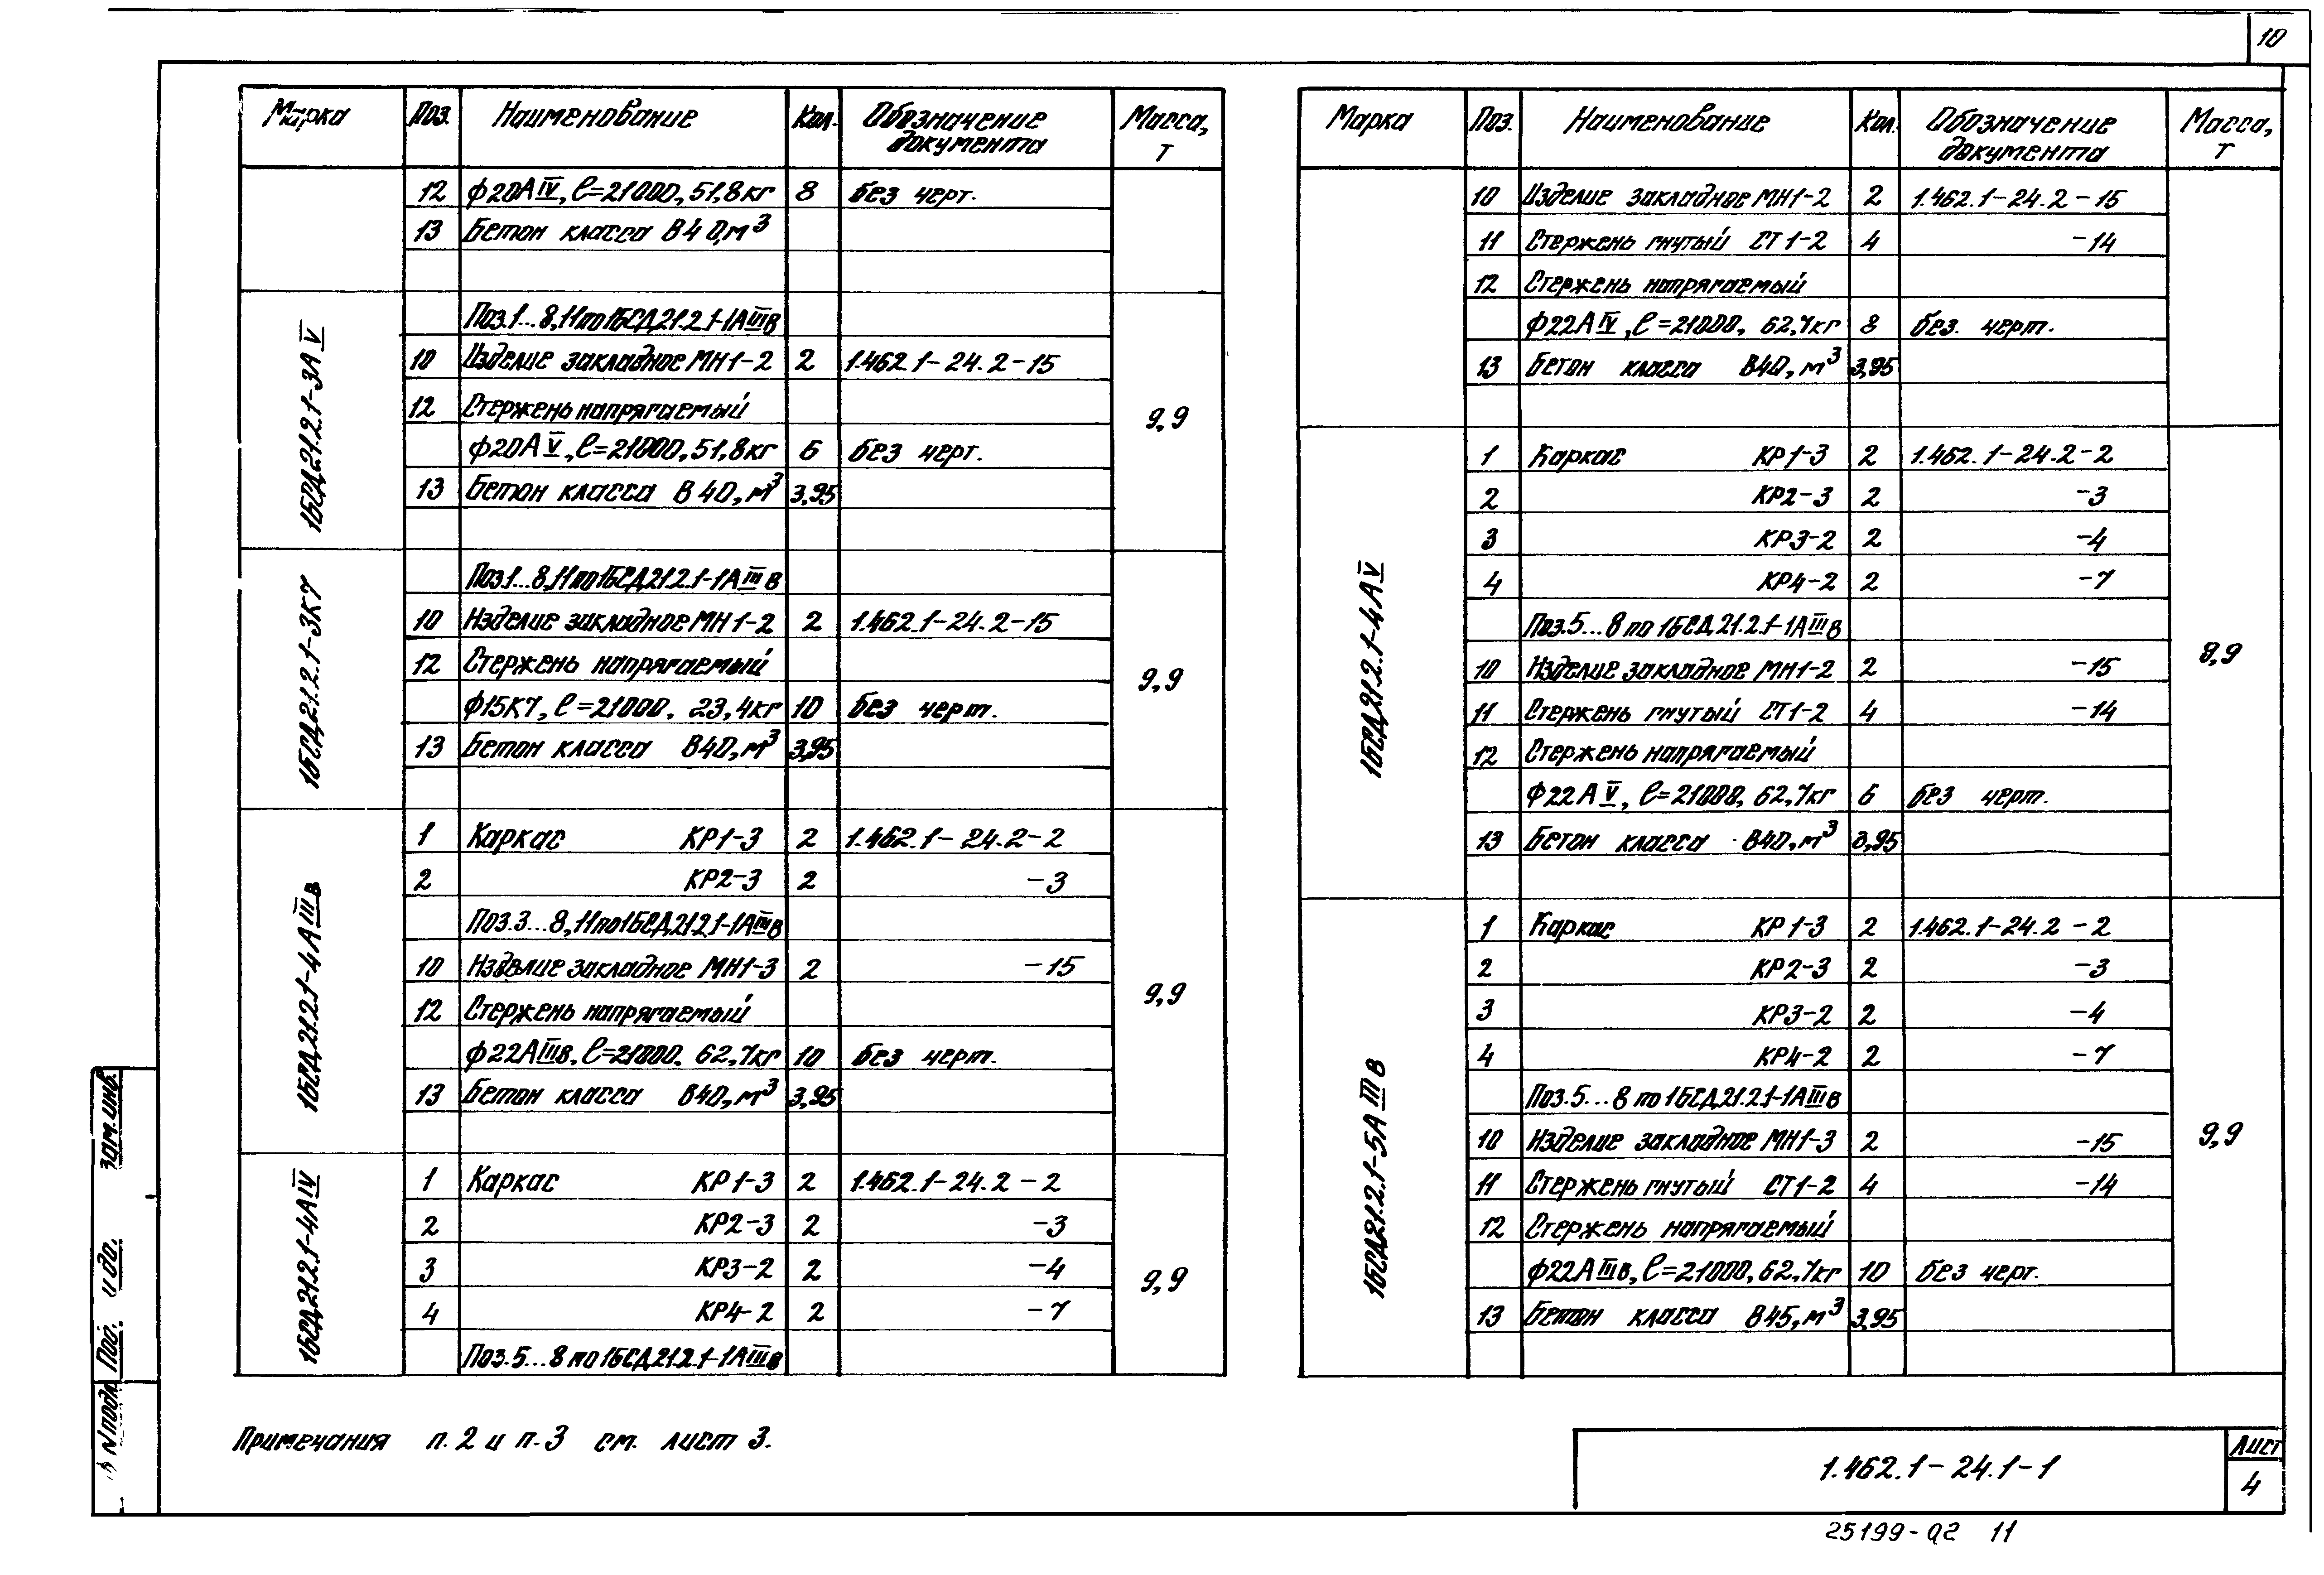 10
Марка Поз. Наименование Кол. Обозначение документа Масса, т
12 ф20АIV, ℓ=21000, 51,8кг 8 без черт.
13 Бетон класса В40, м³
1БСД21.2.1-3АV 9,9
Поз.1...8,11 по 1БСД21.2.1-1АIIIв
10 Изделие закладное МН1-2 2 1.462.1-24.2-15
12 Стержень напрягаемый
ф20АV, ℓ=21000, 51,8кг 6 без черт.
13 Бетон класса В40, м³ 3,95
1БСД21.2.1-3К7 9,9
Поз.1...8,11 по 1БСД21.2.1-1АIIIв
10 Изделие закладное МН1-2 2 1.462.1-24.2-15
12 Стержень напрягаемый
ф15К7, ℓ=21000, 23,4кг 10 без черт.
13 Бетон класса В40, м³ 3,95
1БСД21.2.1-4АIIIв 9,9
1 Каркас КР1-3 2 1.462.1-24.2-2
2 КР2-3 2 -3
Поз.3...8,11 по 1БСД21.2.1-1АIIIв
10 Изделие закладное МН1-3 2 -15
12 Стержень напрягаемый
ф22АIIIв, ℓ=21000, 62,7кг 10 без черт.
13 Бетон класса В40, м³ 3,95
1БСД21.2.1-4АIV 9,9
1 Каркас КР1-3 2 1.462.1-24.2-2
2 КР2-3 2 -3
3 КР3-2 2 -4
4 КР4-2 2 -7
Поз.5...8 по 1БСД21.2.1-1АIIIв
Марка Поз. Наименование Кол. Обозначение документа Масса, т
10 Изделие закладное МН1-2 2 1.462.1-24.2-15
11 Стержень гнутый СТ1-2 4 -14
12 Стержень напрягаемый
ф22АIV, ℓ=21000, 62,7кг 8 без. черт.
13 Бетон класса В40, м³ 3,95
1БСД21.2.1-4АV 9,9
1 Каркас КР1-3 2 1.462.1-24.2-2
2 КР2-3 2 -3
3 КР3-2 2 -4
4 КР4-2 2 -7
Поз.5...8 по 1БСД21.2.1-1АIIIв
10 Изделие закладное МН1-2 2 -15
11 Стержень гнутый СТ1-2 4 -14
12 Стержень напрягаемый
ф22АV, ℓ=21000, 62,7кг 6 без черт.
13 Бетон класса В40, м³ 3,95
1БСД21.2.1-5АIIIв 9,9
1 Каркас КР1-3 2 1.462.1-24.2-2
2 КР2-3 2 -3
3 КР3-2 2 -4
4 КР4-2 2 -7
Поз.5...8 по 1БСД21.2.1-1АIIIв
10 Изделие закладное МН1-3 2 -15
11 Стержень гнутый СТ1-2 4 -14
12 Стержень напрягаемый
ф22АIIIв, ℓ=21000, 62,7кг 10 без черт.
13 Бетон класса В45, м³ 3,95
Примечания п.2 и п.3 см. лист 3.
1.462.1-24.1-1
Лист
4
25199-02 11
зам.инв.
Под. и да.
N подл